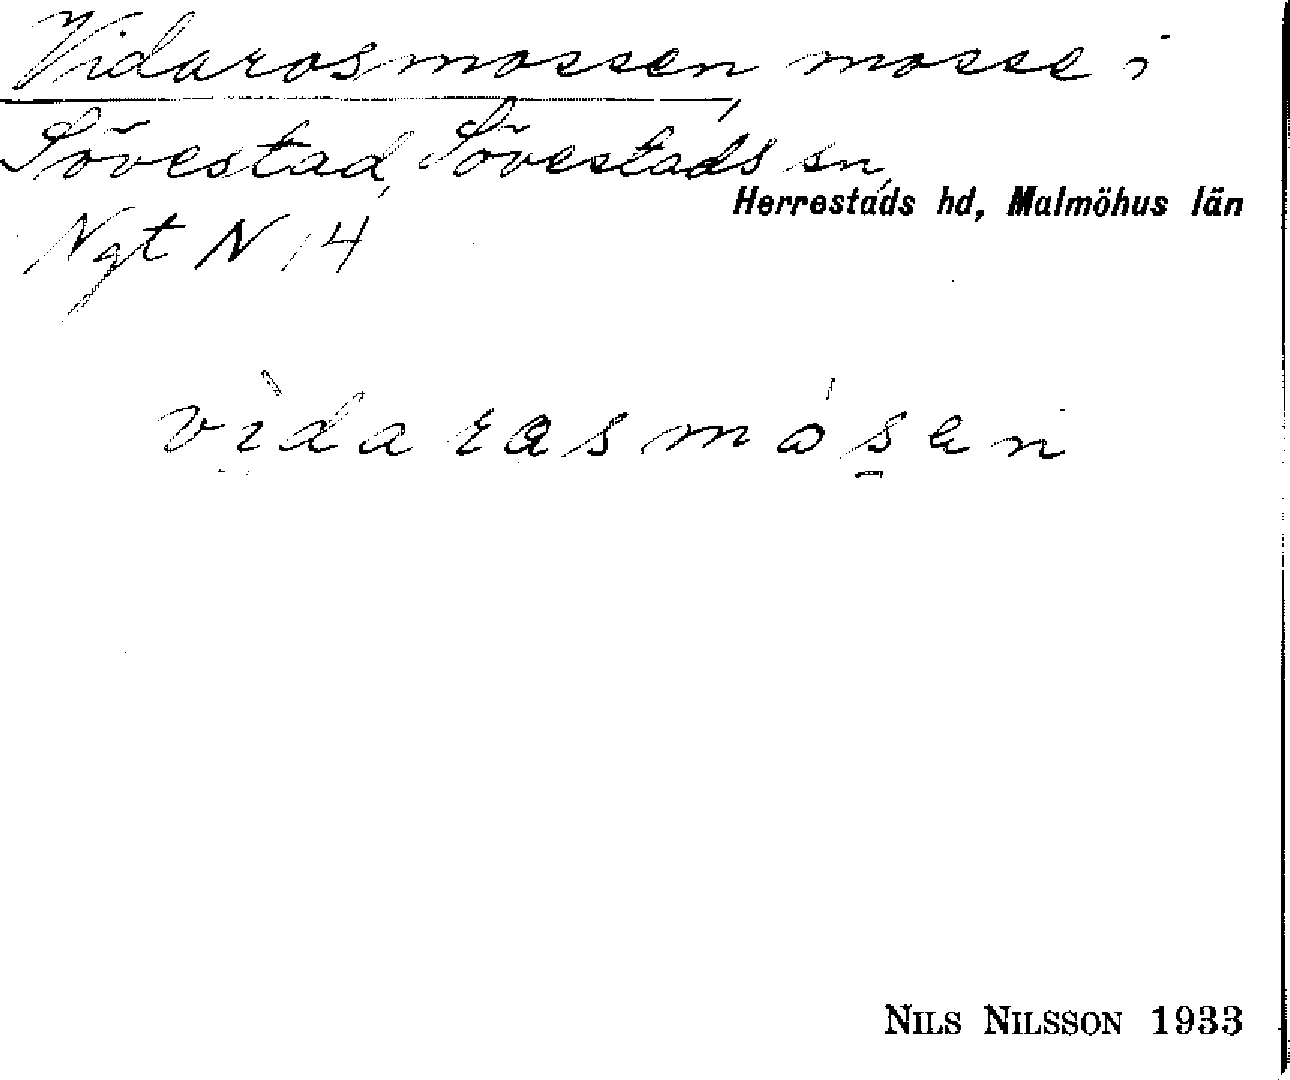 Vidarosmossen, mosse i
Sövestad, Sövestads sn,
Herrestads hd, Malmöhus län
Ngt N 14
vìdarasmósen
NILS NILSSON 1933